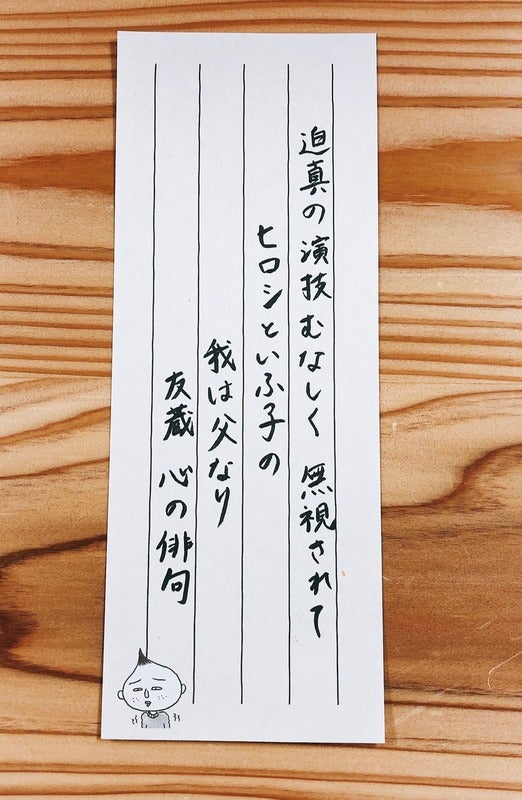 迫真の演技むなしく 無視されて
ヒロシといふ子の
我は父なり
友蔵 心の俳句